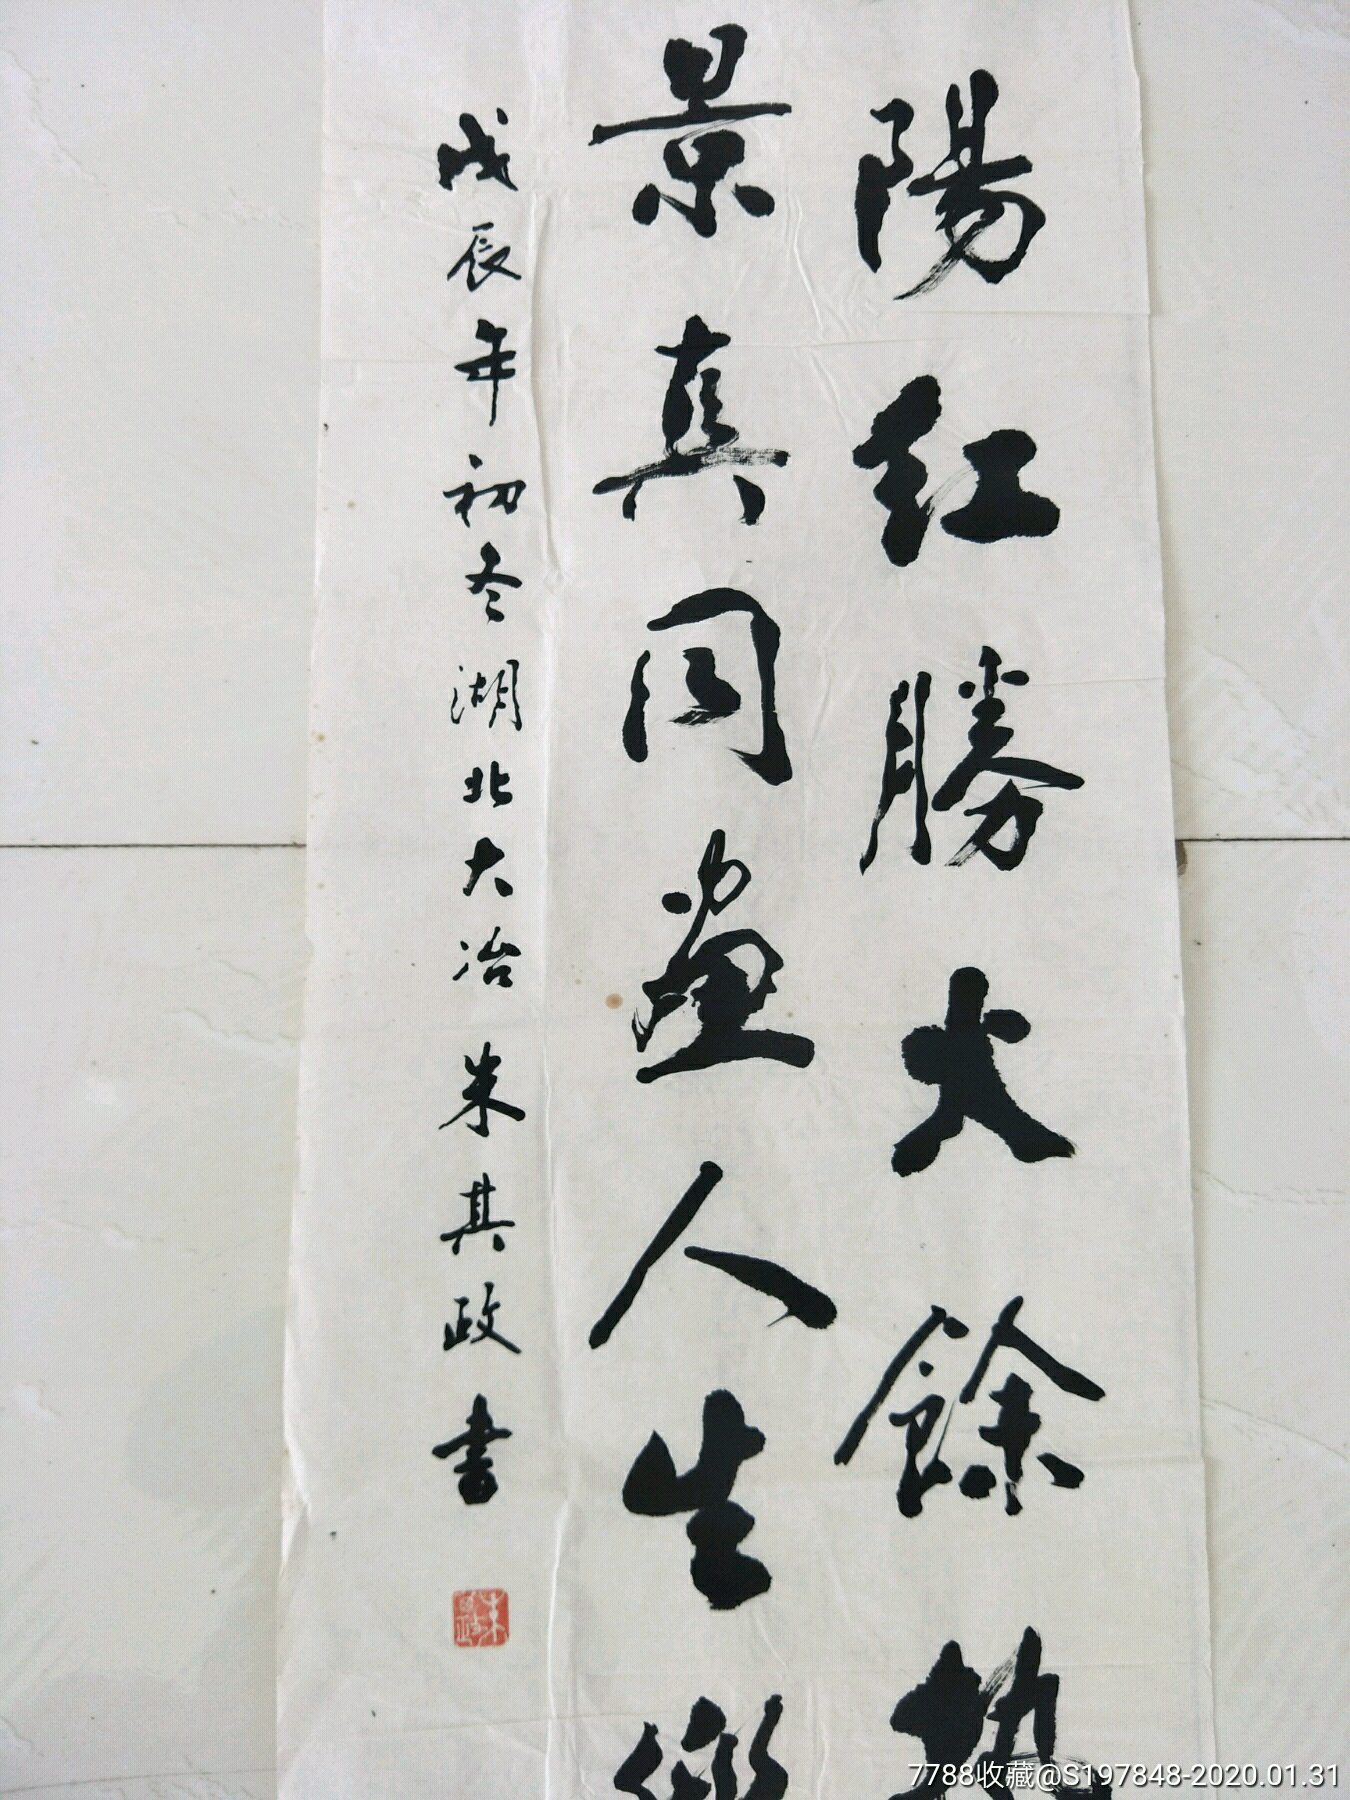 陽紅勝火餘熱
景真同畫人生樂
戊辰年初冬湖北大冶朱其政書
7788收藏@S197848-2020.01.31